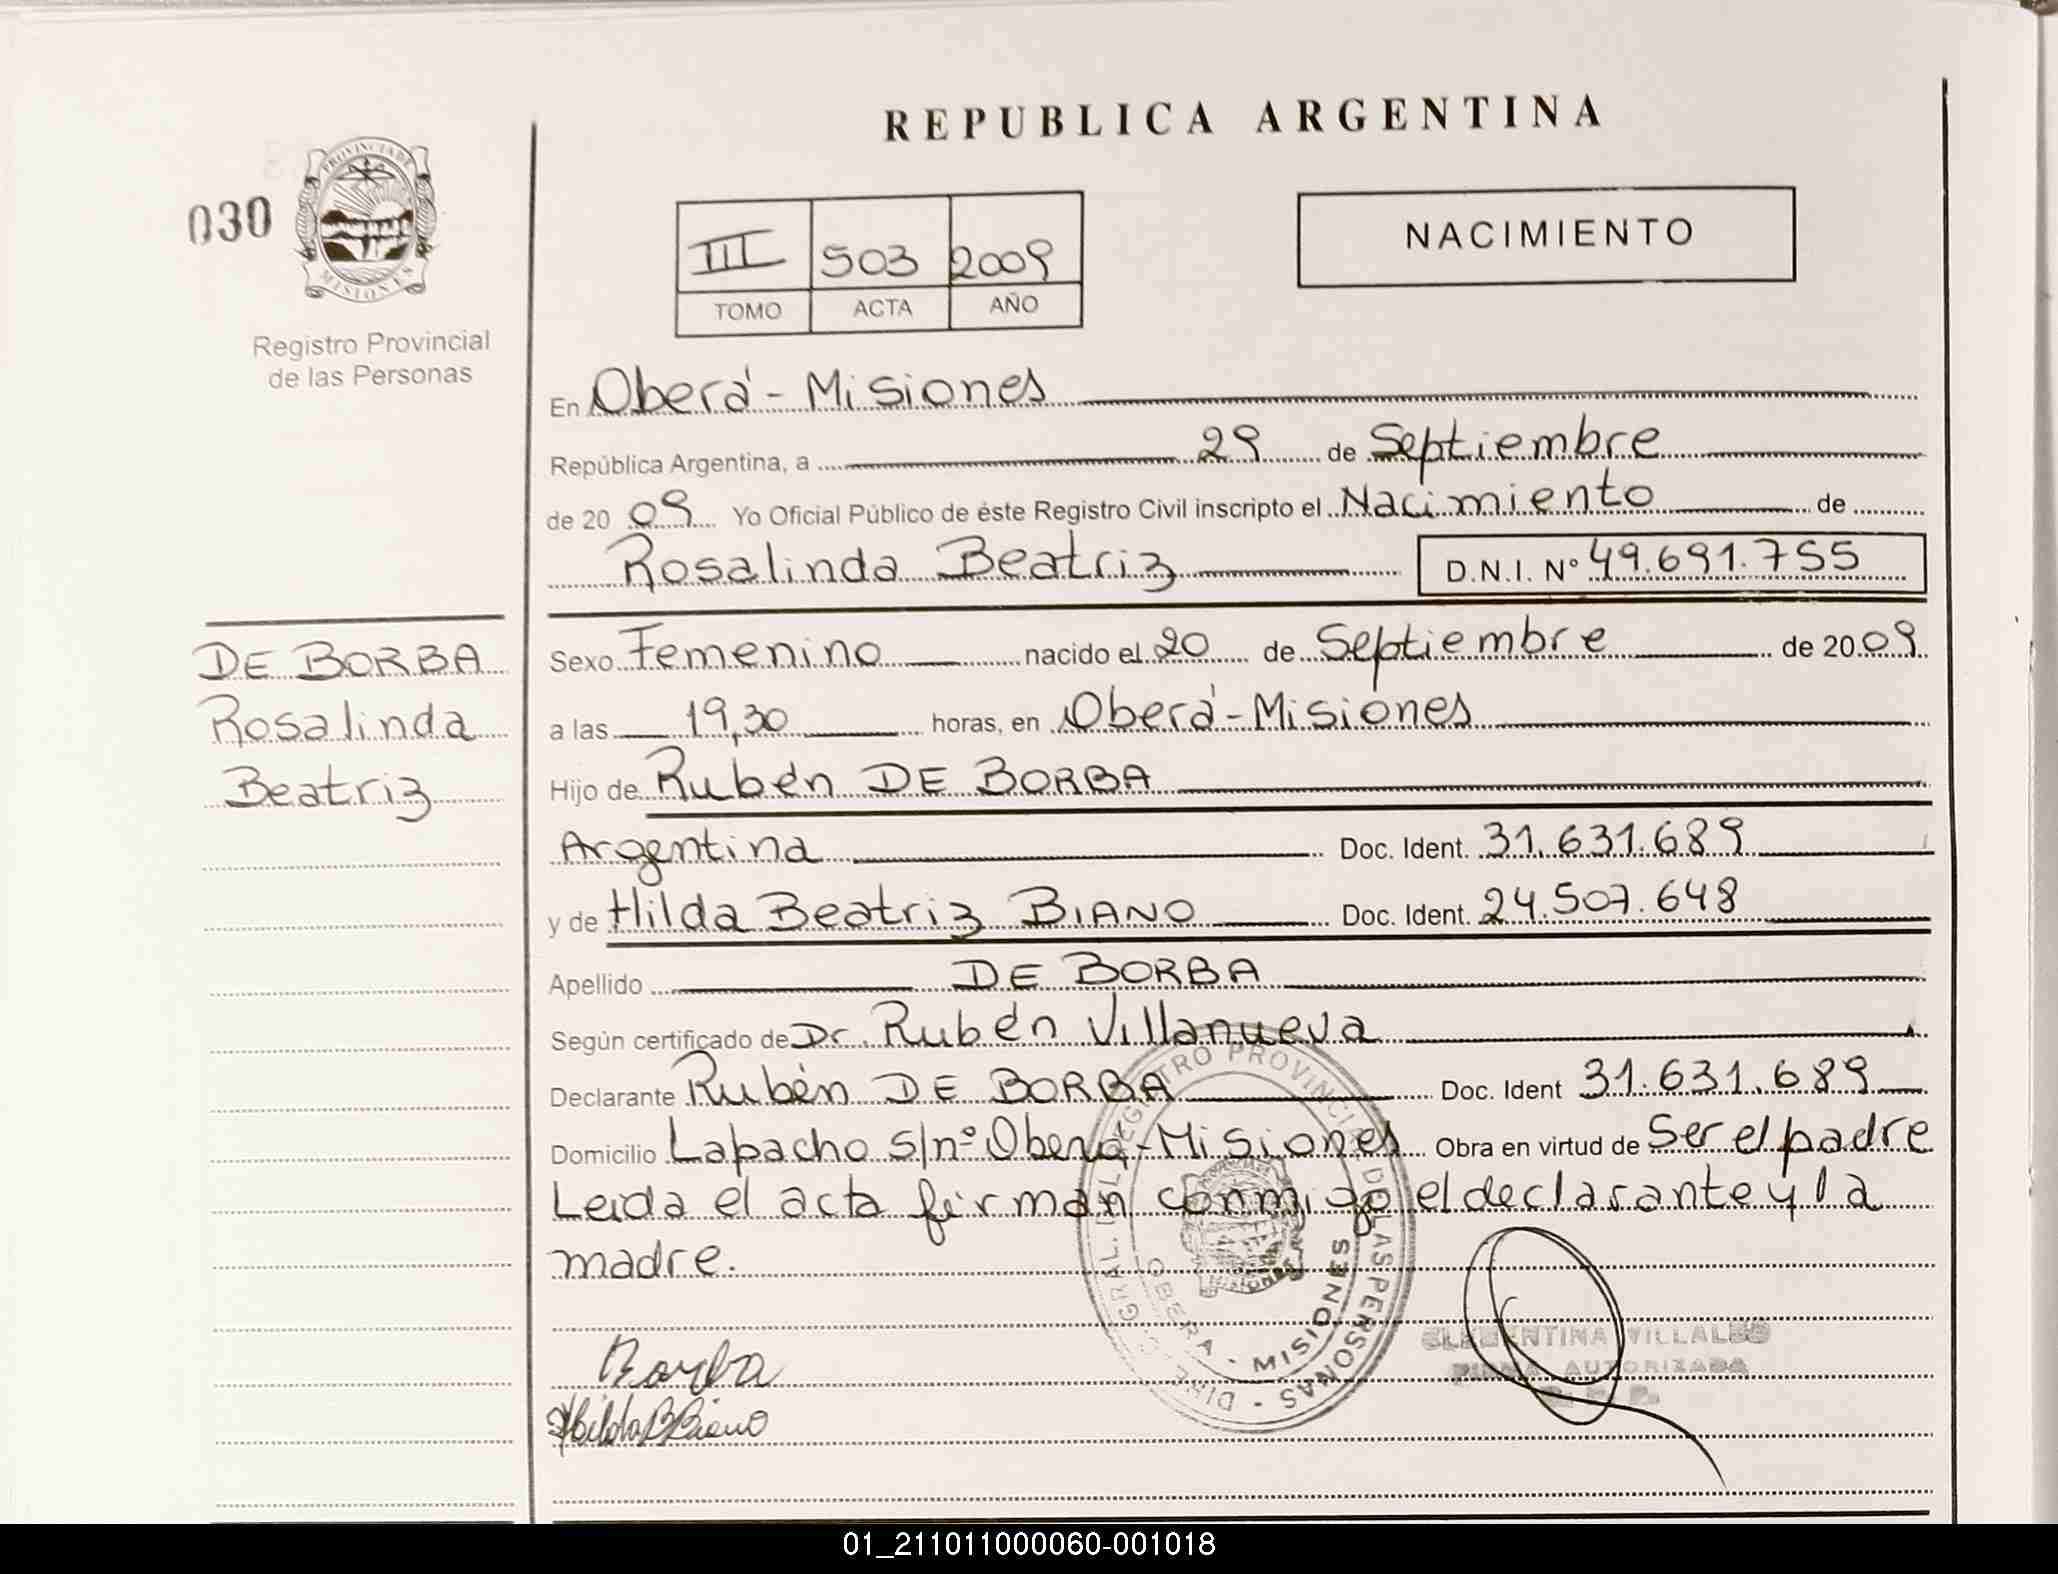 REPUBLICA ARGENTINA
030
PROVINCIA DE
MISIONES
Registro Provincial
de las Personas
III 503 2009
TOMO ACTA AÑO
NACIMIENTO
En Oberá - Misiones
República Argentina, a 29 de Septiembre
de 20 09 Yo Oficial Público de éste Registro Civil inscripto el Nacimiento de
Rosalinda Beatriz D.N.I. Nº 49.691.755
DE BORBA
Rosalinda
Beatriz
Sexo Femenino nacido el 20 de Septiembre de 20 09
a las 19,30 horas, en Oberá - Misiones
Hijo de Rubén DE BORBA
Argentina Doc. Ident. 31.631.689
y de Hilda Beatriz BIANO Doc. Ident. 24.507.648
Apellido DE BORBA
Según certificado de Dr. Rubén Villanueva
Declarante Rubén DE BORBA Doc. Ident 31.631.689
Domicilio Lapacho s/nº Oberá - Misiones Obra en virtud de Ser el padre
Leída el acta firman conmigo el declarante y la
madre.
DIREC. GRAL. DEL REGISTRO PROVINCIAL DE LAS PERSONAS
OBERA - MISIONES
Borba
Hilda B Biano
CLEMENTINA VILLALBO
FIRMA AUTORIZADA
01_211011000060-001018